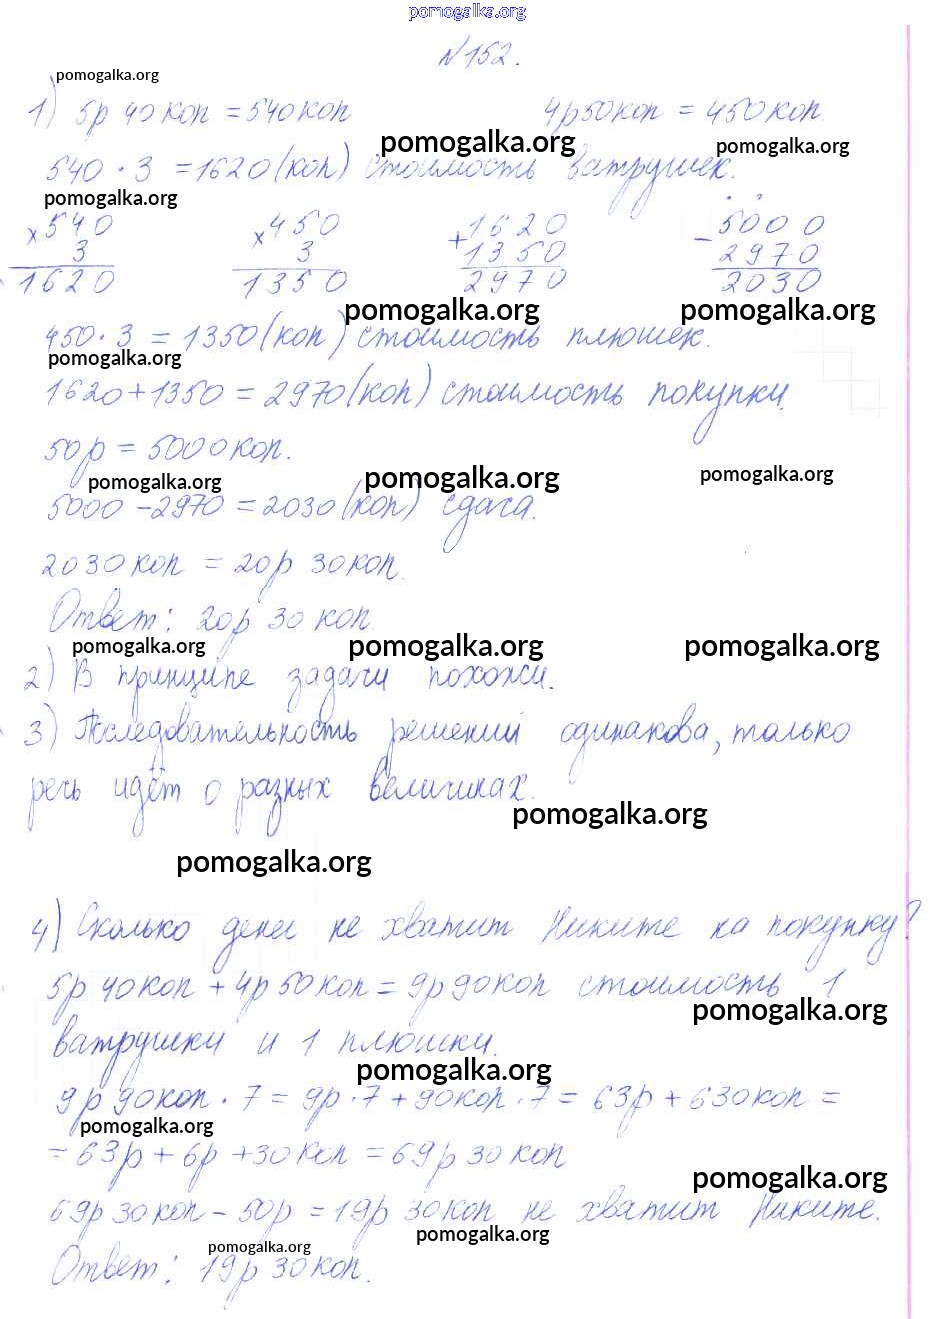 pomogalka.org
№152.
pomogalka.org
1) 5р 40 коп = 540 коп 4р 50 коп = 450 коп.
pomogalka.org pomogalka.org
540 · 3 = 1620 (коп) стоимость ватрушек.
pomogalka.org
×540 ×450 +1620 -5000
3 3 1350 2970
1620 1350 2970 2030
pomogalka.org pomogalka.org
450 · 3 = 1350 (коп) стоимость плюшек.
pomogalka.org
1620 + 1350 = 2970 (коп) стоимость покупки.
50р = 5000 коп.
pomogalka.org pomogalka.org pomogalka.org
5000 - 2970 = 2030 (коп) сдача.
2030 коп = 20р 30 коп.
Ответ: 20р 30 коп.
pomogalka.org pomogalka.org pomogalka.org
2) В принципе задачи похожи.
3) Последовательность решений одинакова, только
речь идёт о разных величинах.
pomogalka.org
pomogalka.org
4) Сколько денег не хватит Никите на покупку?
5р 40 коп + 4р 50 коп = 9р 90 коп стоимость 1
pomogalka.org
ватрушки и 1 плюшки.
pomogalka.org
9р 90 коп · 7 = 9р · 7 + 90 коп · 7 = 63р + 630 коп =
pomogalka.org
= 63р + 6р + 30 коп = 69р 30 коп
pomogalka.org
69р 30 коп - 50р = 19р 30 коп не хватит Никите.
pomogalka.org
pomogalka.org
Ответ: 19р 30 коп.